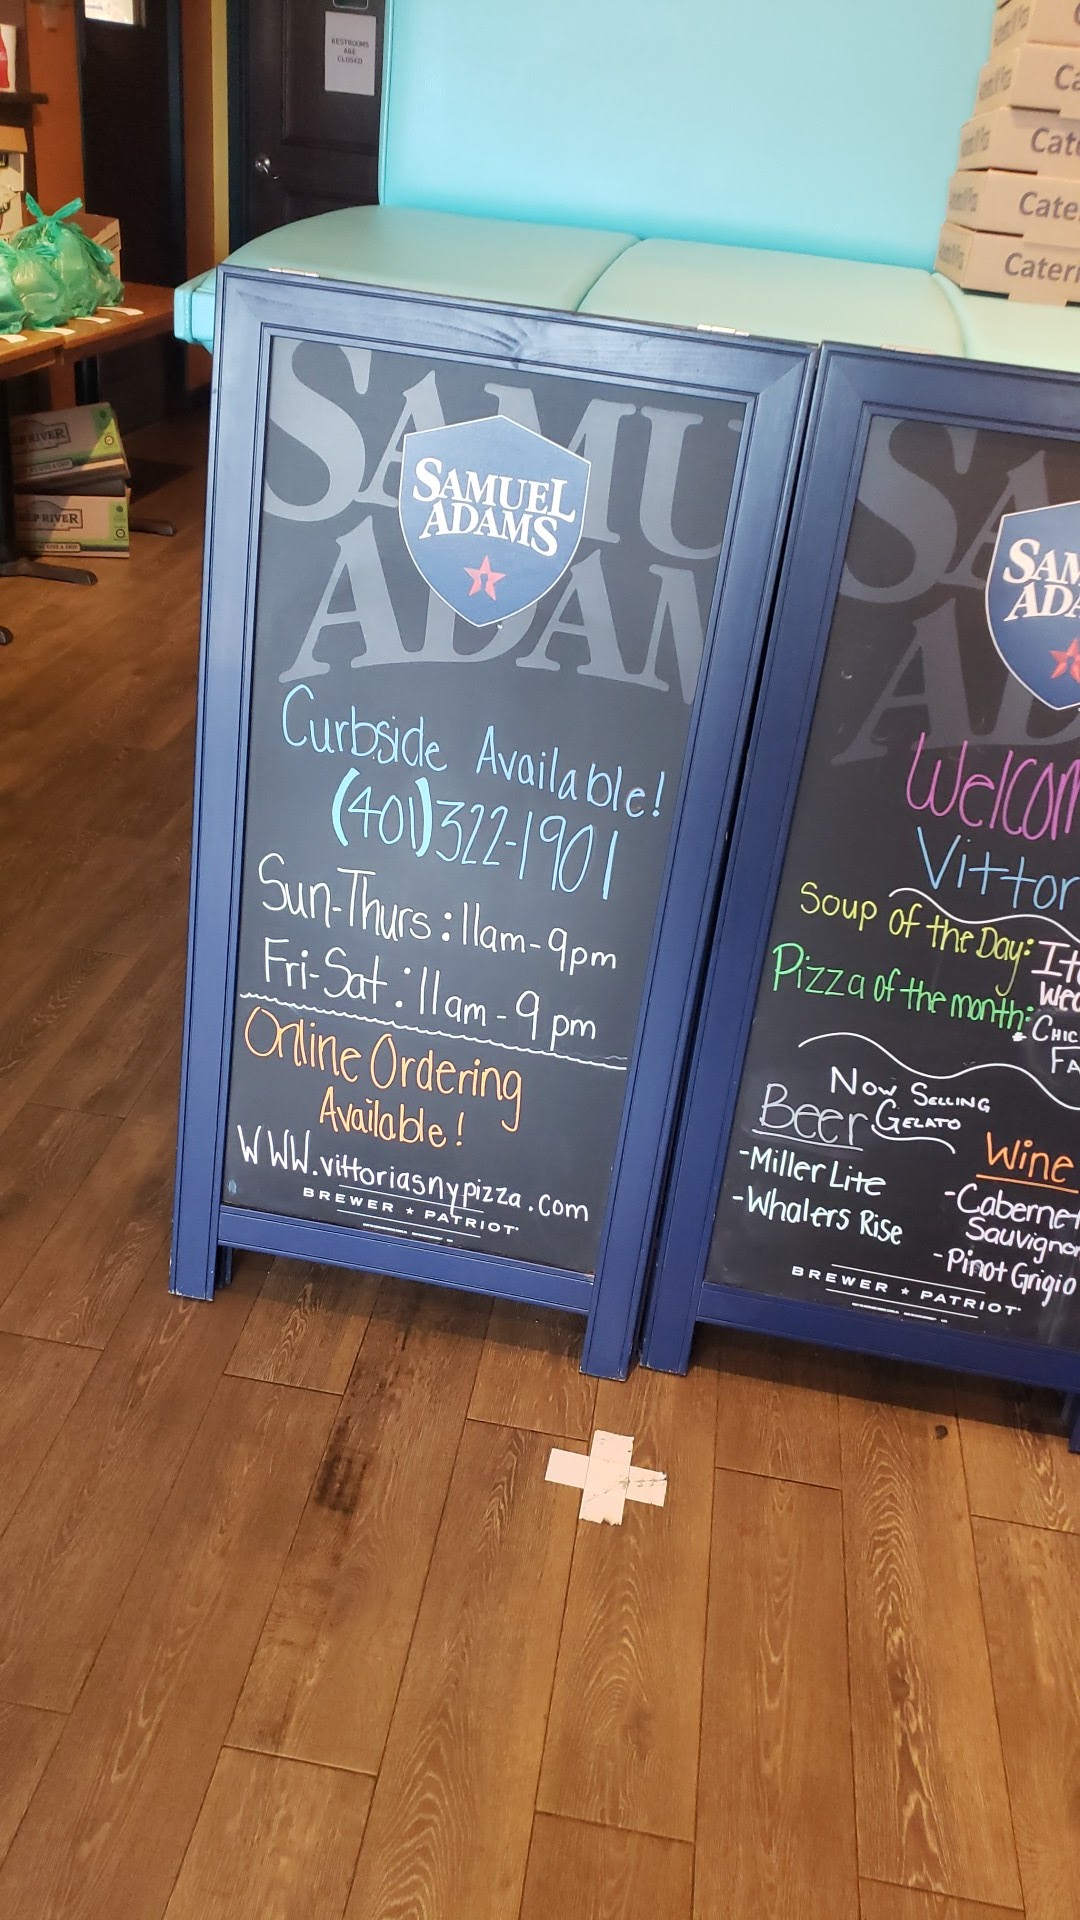 RESTROOMS
ARE
CLOSED
Cate
Cate
Cateri
RIVER
RIVER
SAMUEL
ADAMS
SAMUEL
ADAMS
Curbside Available!
(401)322-1901
Sun-Thurs: 11am-9pm
Fri-Sat: 11am-9pm
Online Ordering
Available!
WWW.vittoriasnypizza.com
BREWER ★ PATRIOT
SAM
ADA
Welcom
Vittor
Soup of the Day:
Pizza of the month:
CHIC
FA
NOW SELLING
GELATO
Beer
-Miller Lite
-Whalers Rise
Wine
-Cabernet
Sauvignon
-Pinot Grigio
BREWER ★ PATRIOT